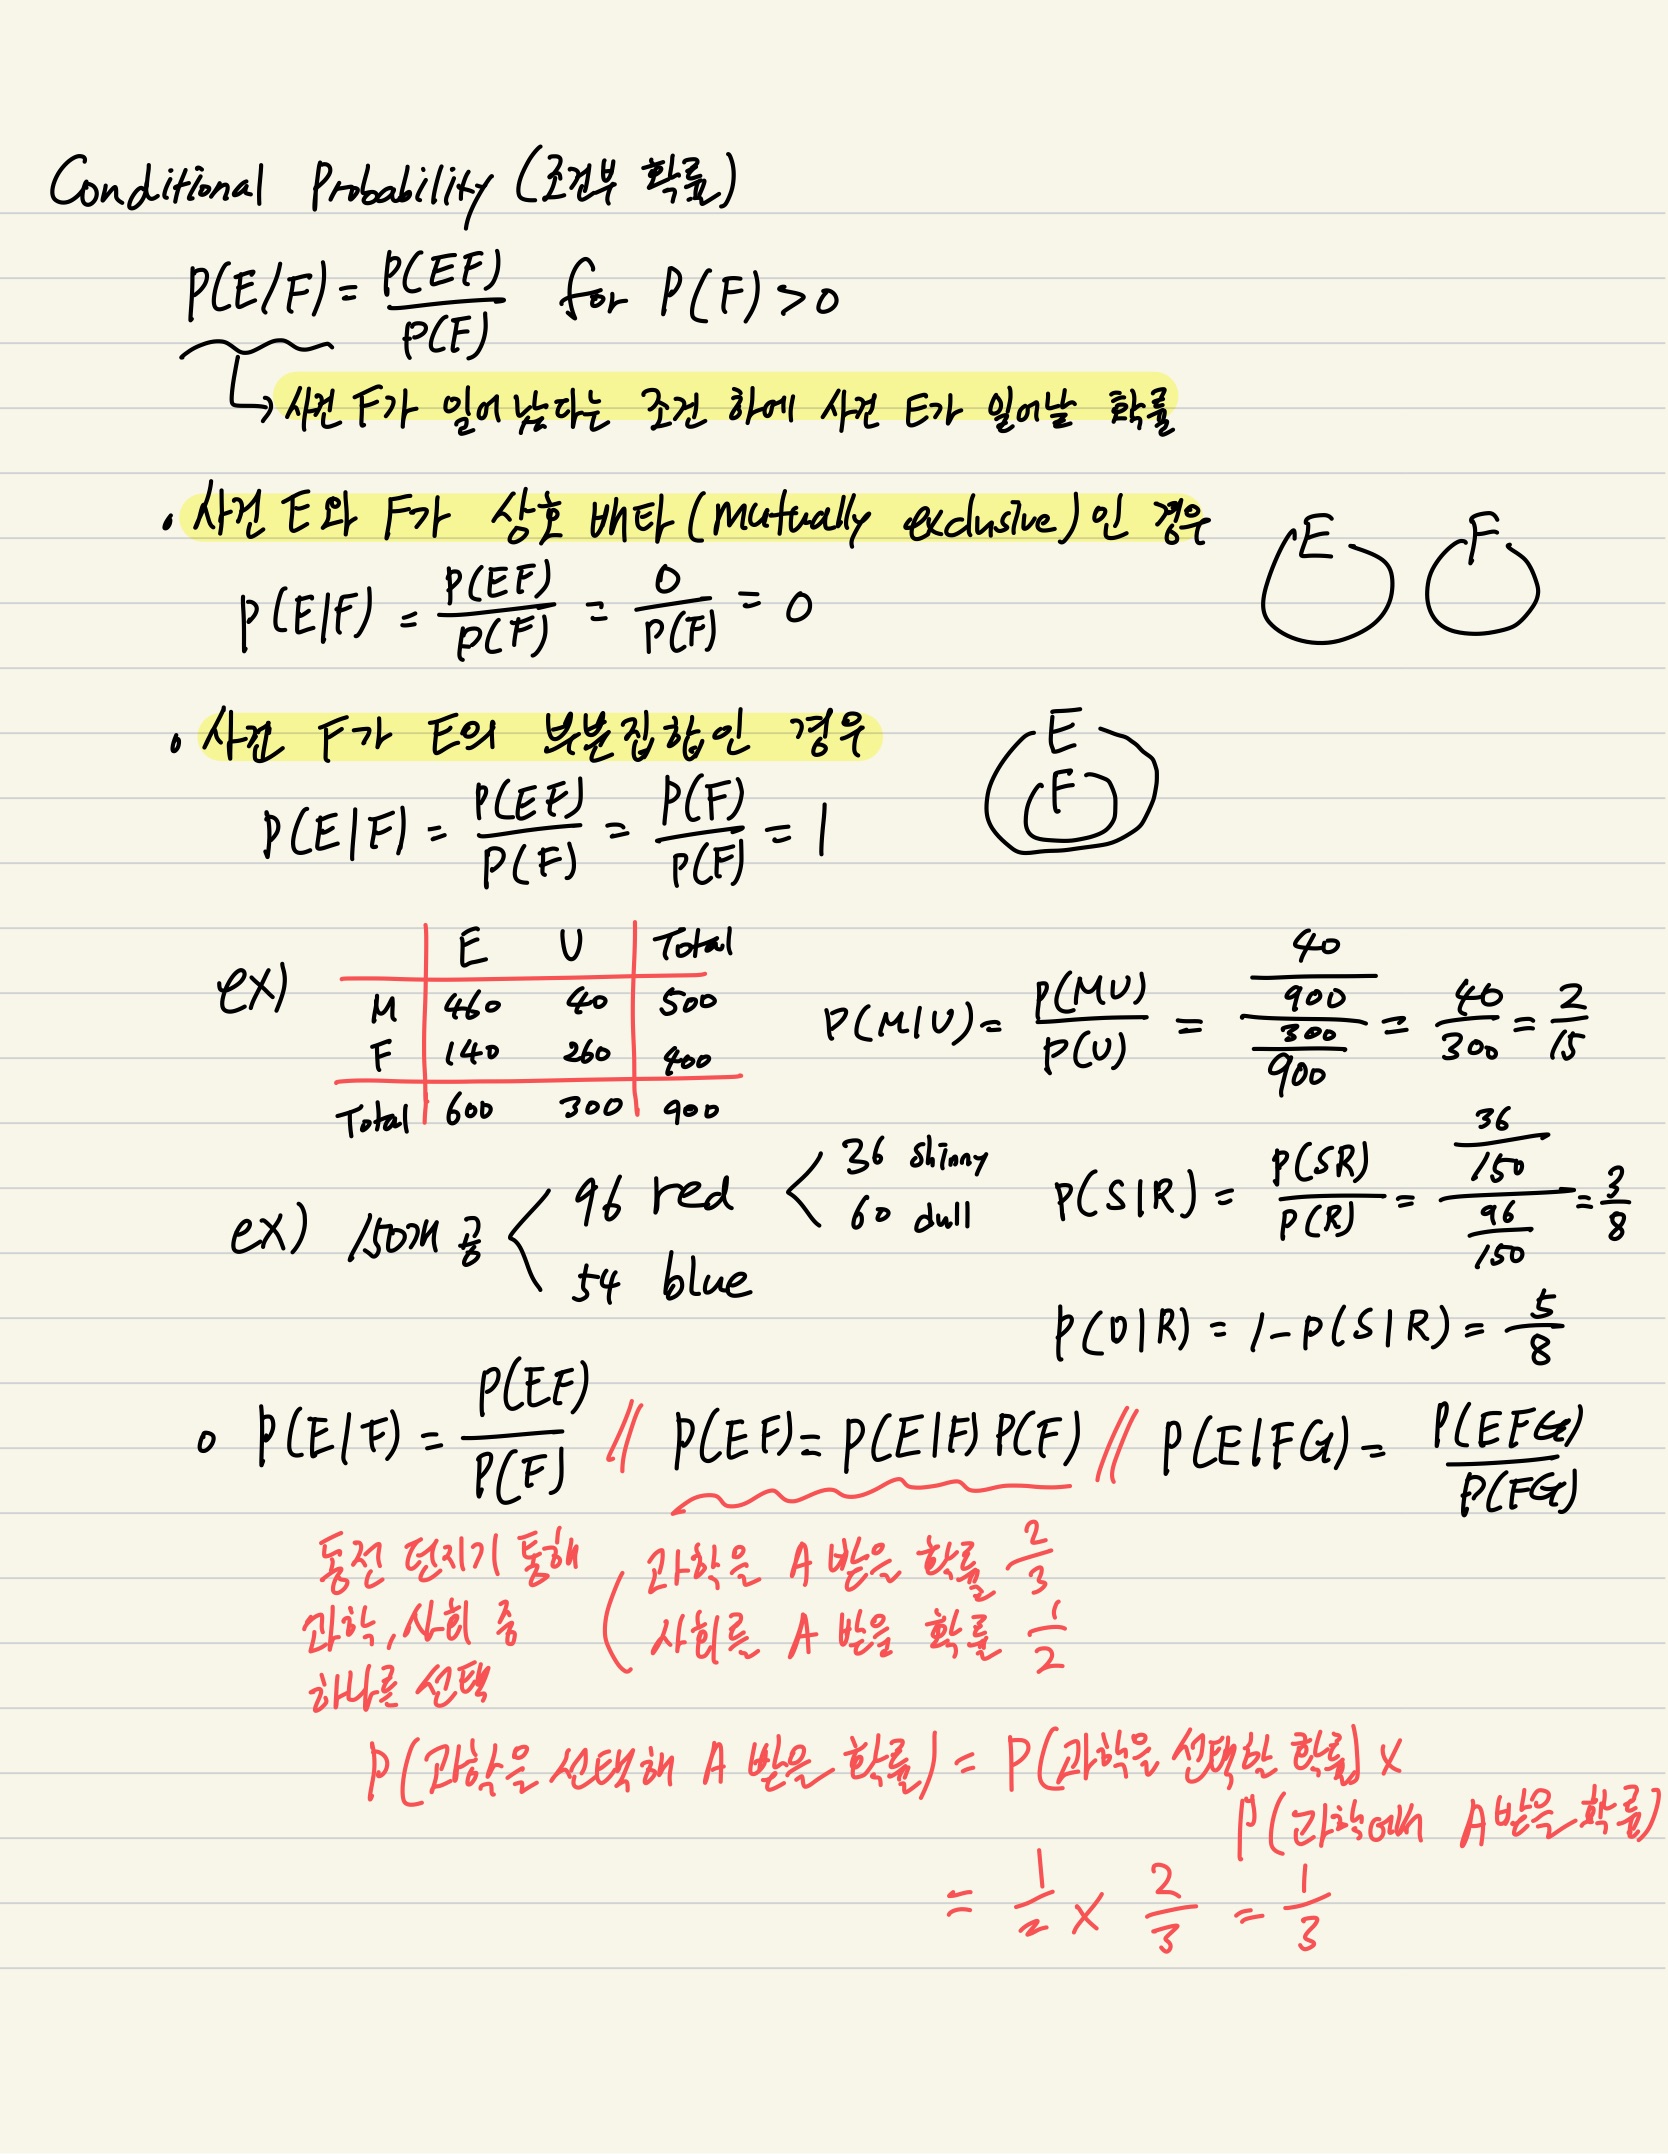 Conditional Probability (조건부 확률)
P(E/F) = P(EF)/P(F) for P(F) > 0
→ 사건 F가 일어났다는 조건 하에 사건 E가 일어날 확률
• 사건 E와 F가 상호 배타(mutually exclusive)인 경우
E F
P(E|F) = P(EF)/P(F) = 0/P(F) = 0
• 사건 F가 E의 부분집합인 경우
E
F
P(E|F) = P(EF)/P(F) = P(F)/P(F) = 1
ex)
E U Total
M 460 40 500
F 140 260 400
Total 600 300 900
P(M|U) = P(MU)/P(U) = (40/900)/(300/900) = 40/300 = 2/15
ex) 150개 공 < 96 red < 36 shinny
60 dull
54 blue
P(S|R) = P(SR)/P(R) = (36/150)/(96/150) = 3/8
P(D|R) = 1 - P(S|R) = 5/8
• P(E|F) = P(EF)/P(F) // P(EF) = P(E|F) P(F) // P(E|FG) = P(EFG)/P(FG)
동전 던지기 통해
과학, 사회 중
하나를 선택
과학을 A 받을 확률 2/3
사회를 A 받을 확률 1/2
P(과학을 선택해 A 받을 확률) = P(과학을 선택할 확률) ×
P(과학에서 A 받을 확률)
= 1/2 × 2/3 = 1/3